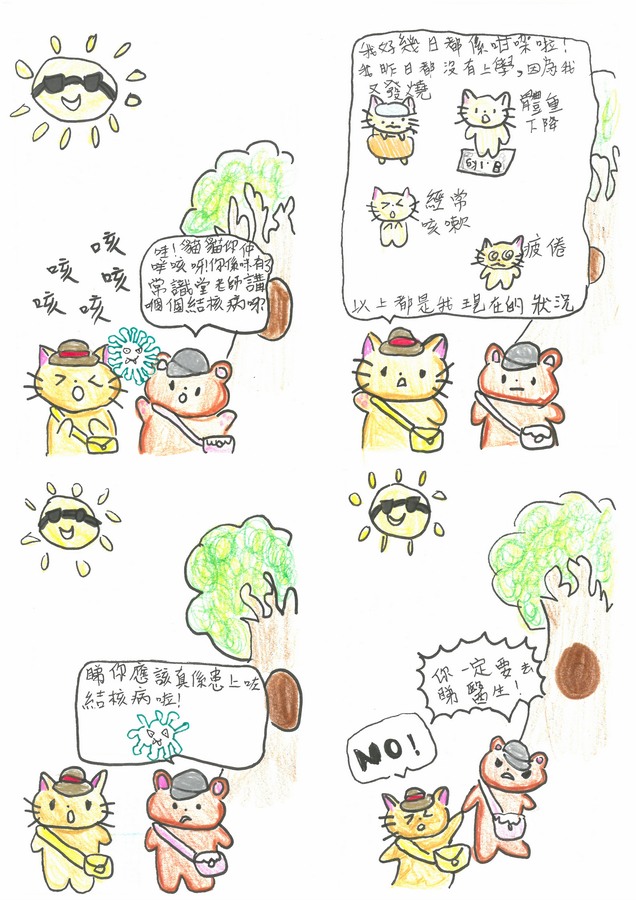 咳
咳
咳
咳
咳
哇!貓貓你仲
咳呀!你係咪有
常識堂老師講
嗰個結核病呀?
我好幾日都係咁㗎啦!
我昨日都沒有上學,因為我
又發燒
體重
下降
經常
咳嗽
疲倦
以上都是我現在的狀況
睇你應該真係患上咗
結核病啦!
你一定要去
睇醫生!
NO!